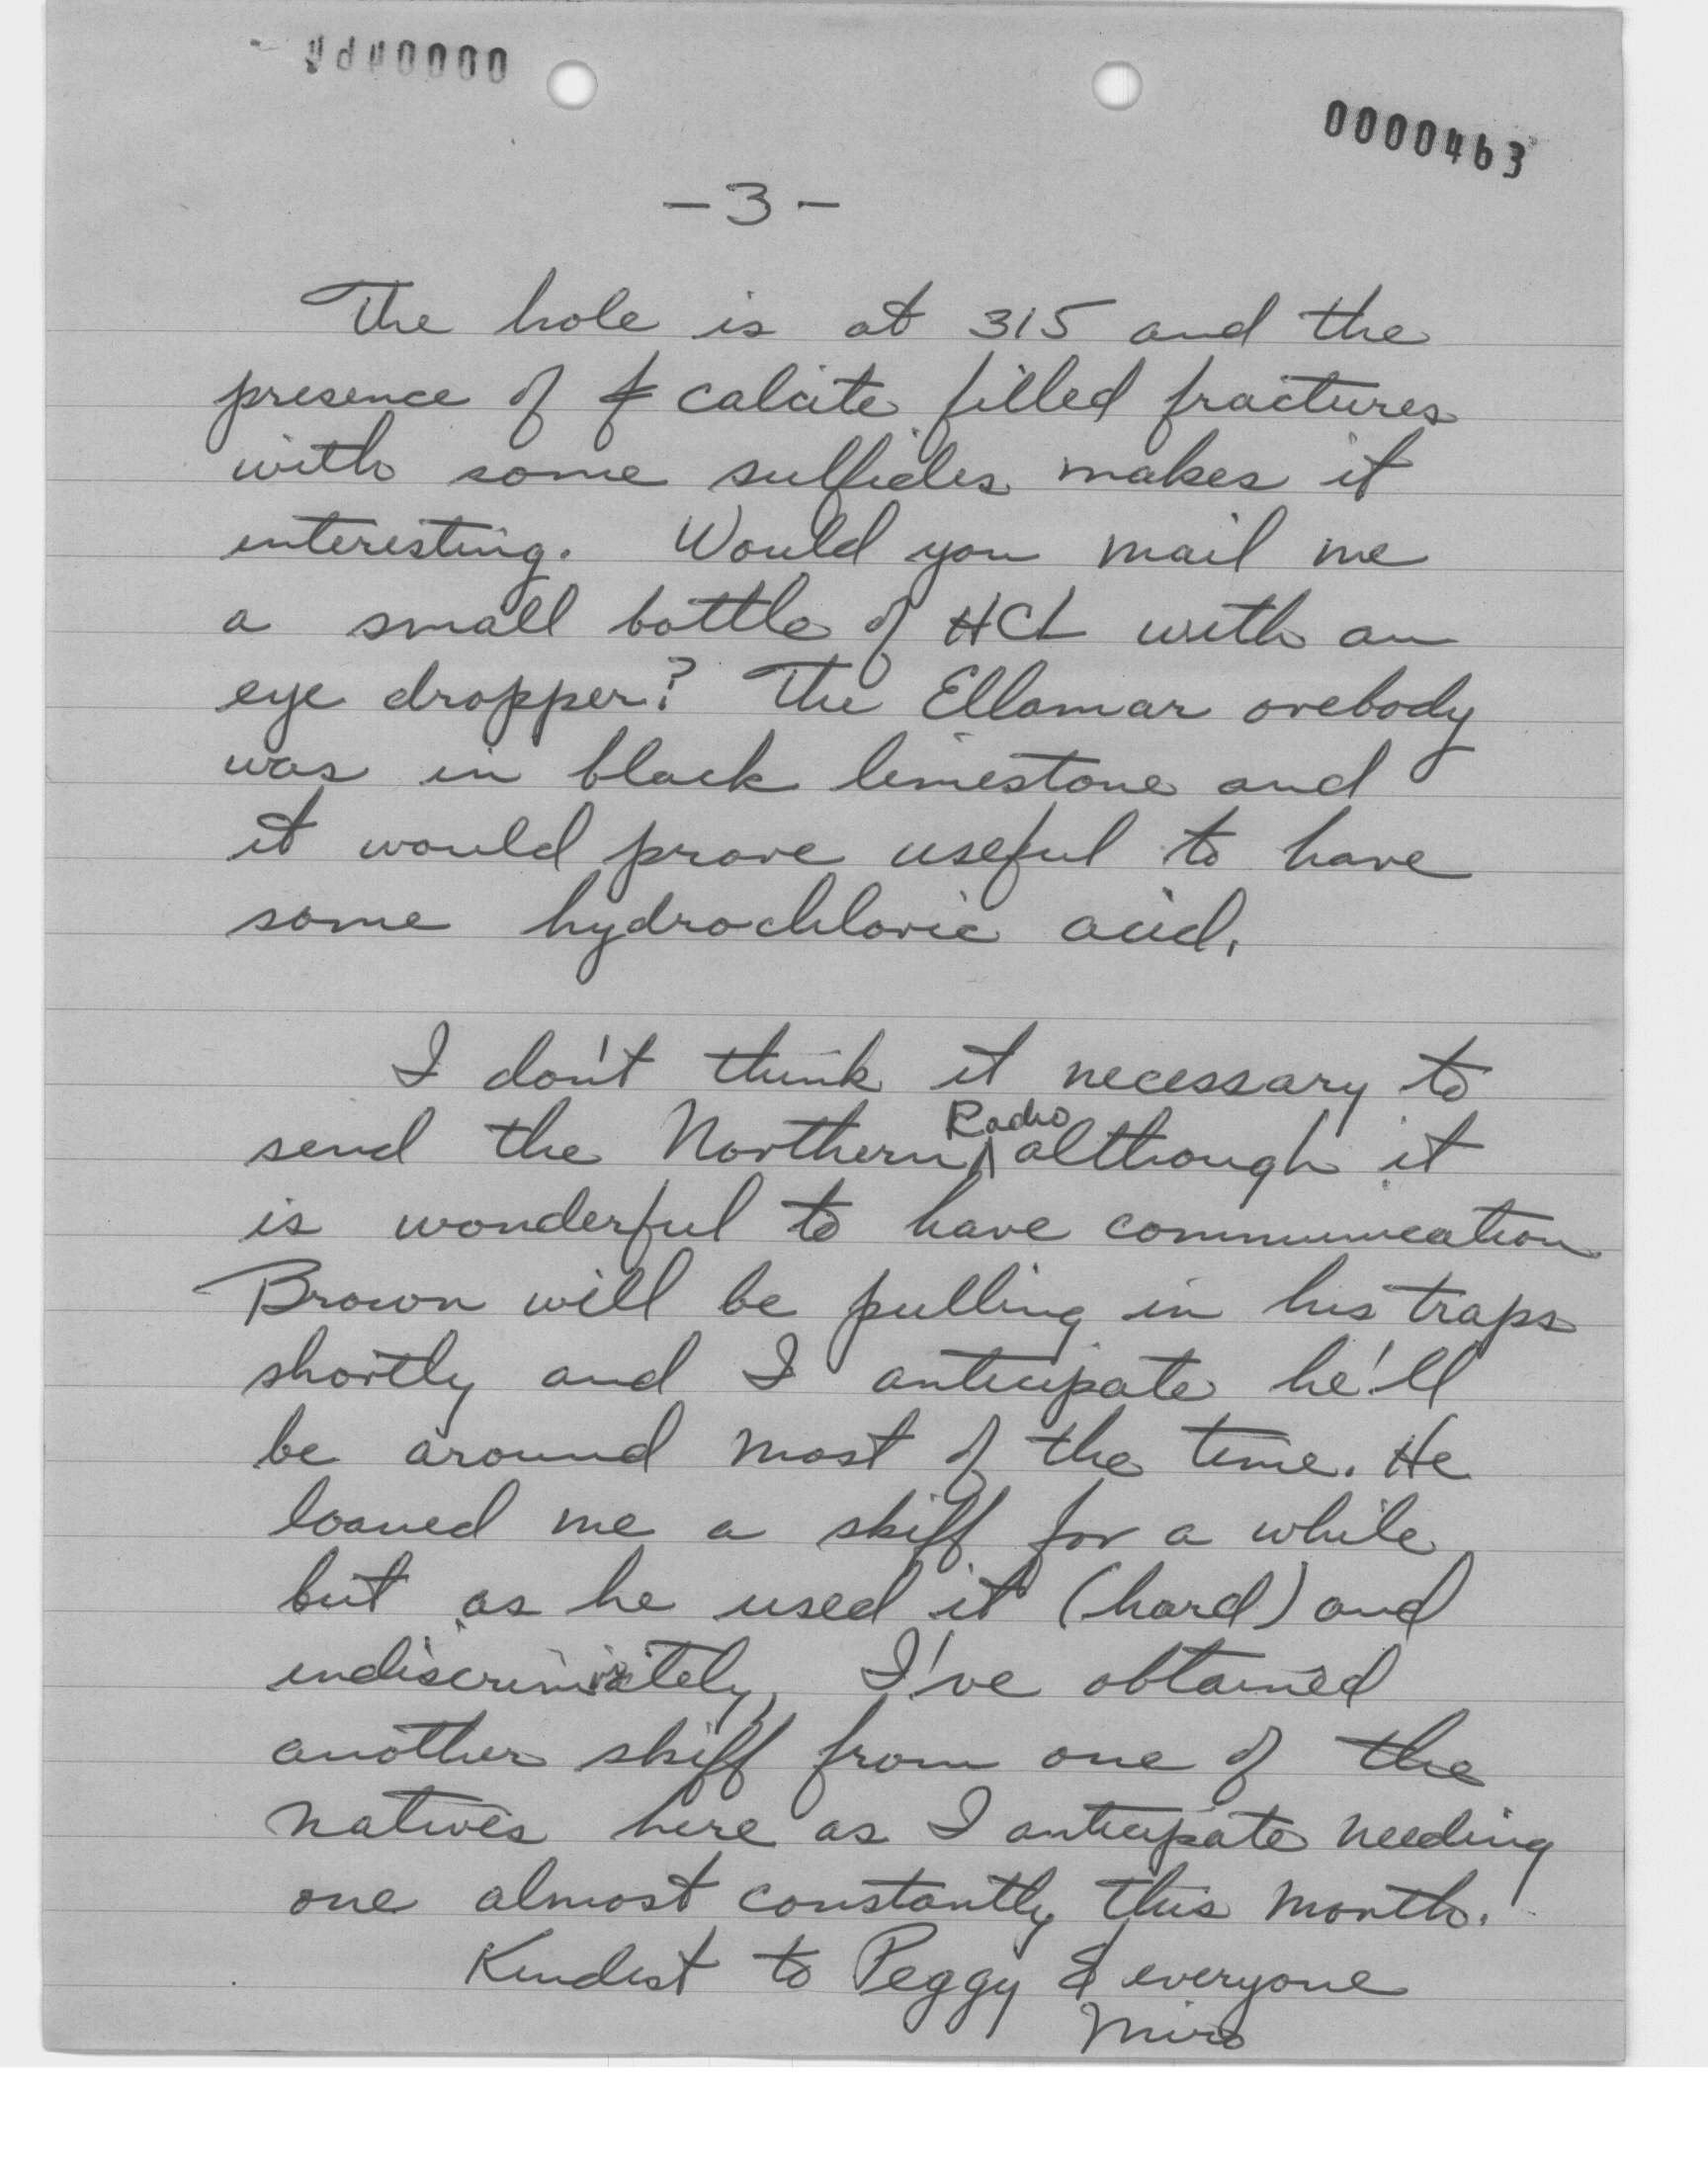 0000463
- 3 -
The hole is at 315 and the
presence of calcite filled fractures
with some sulfides makes it
interesting. Would you mail me
a small bottle of HCL with an
eye dropper? The Ellamar orebody
was in black limestone and
it would prove useful to have
some hydrochloric acid.
I don't think it necessary to
send the Northern Radio although it
is wonderful to have communication
Brown will be pulling in his traps
shortly and I anticipate he'll
be around most of the time. He
loaned me a skiff for a while
but as he used it (hard) and
indiscriminately, I've obtained
another skiff from one of the
natives here as I anticipate needing
one almost constantly this month.
Kindest to Peggy & everyone
Miro